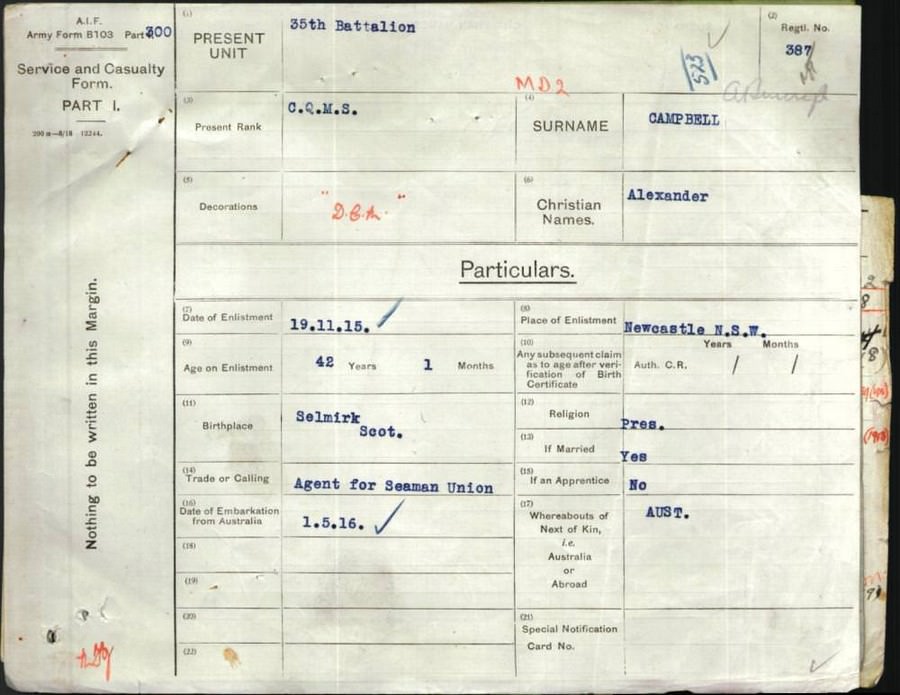 A.I.F.
Army Form B103 Part 300
Service and Casualty
Form.
PART I.
200 m—8/18 12244.
Nothing to be written in this Margin.
(1)
PRESENT
UNIT
35th Battalion
(2)
Regtl. No.
387
523
MD2
(3)
Present Rank
C.Q.M.S.
(4)
SURNAME
CAMPBELL
(5)
Decorations
"D.C.M."
(6)
Christian
Names.
Alexander
Particulars.
(7)
Date of Enlistment
19.11.15.
(8)
Place of Enlistment
Newcastle N.S.W.
(9)
Age on Enlistment
42 Years 1 Months
(10)
Any subsequent claim
as to age after veri-
fication of Birth
Certificate
Years Months
Auth. C.R. / /
(11)
Birthplace
Selmirk
Scot.
(12)
Religion
Pres.
(13)
If Married
Yes
(14)
Trade or Calling
Agent for Seaman Union
(15)
If an Apprentice
No
(16)
Date of Embarkation
from Australia
1.5.16.
(17)
Whereabouts of
Next of Kin,
i.e.
Australia
or
Abroad
AUST.
(18)
(19)
(20)
(21)
Special Notification
Card No.
(22)